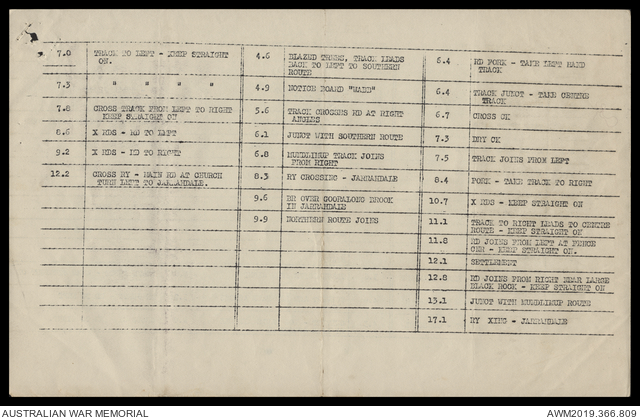 7.0 TRACK TO LEFT - KEEP STRAIGHT
ON.
7.3 " " " "
7.8 CROSS TRACK FROM LEFT TO RIGHT
KEEP STRAIGHT ON
8.6 X RDS - RD TO LEFT
9.2 X RDS - RD TO RIGHT
12.2 CROSS RY - MAIN RD AT CHURCH
TURN LEFT TO JARRAHDALE.
4.6 BLAZED TREES, TRACK LEADS
BACK TO LEFT TO SOUTHERN
ROUTE
4.9 NOTICE BOARD
5.6 TRACK CROSSES RD AT RIGHT
ANGLES
6.1 JUNCT WITH SOUTHERN ROUTE
6.8 MUNDLIMUP TRACK JOINS
FROM RIGHT
8.3 RY CROSSING - JARRAHDALE
9.6 BR OVER GOORALONG BROOK
IN JARRAHDALE
9.9 NORTHERN ROUTE JOINS
6.4 RD FORK - TAKE LEFT HAND
TRACK
6.4 TRACK JUNCT - TAKE CENTRE
TRACK
6.7 CROSS CK
7.3 DRY CK
7.5 TRACK JOINS FROM LEFT
8.4 FORK - TAKE TRACK TO RIGHT
10.7 X RDS - KEEP STRAIGHT ON
11.1 TRACK TO RIGHT LEADS TO CENTRE
ROUTE - KEEP STRAIGHT ON
11.8 RD JOINS FROM LEFT AT FENCE
CNR - KEEP STRAIGHT ON.
12.1 SETTLEMENT
12.8 RD JOINS FROM RIGHT NEAR LARGE
BLACK ROCK - KEEP STRAIGHT ON
13.1 JUNCT WITH MUNDLIMUP ROUTE
17.1 RY XING - JARRAHDALE
AUSTRALIAN WAR MEMORIAL
AWM2019.366.809